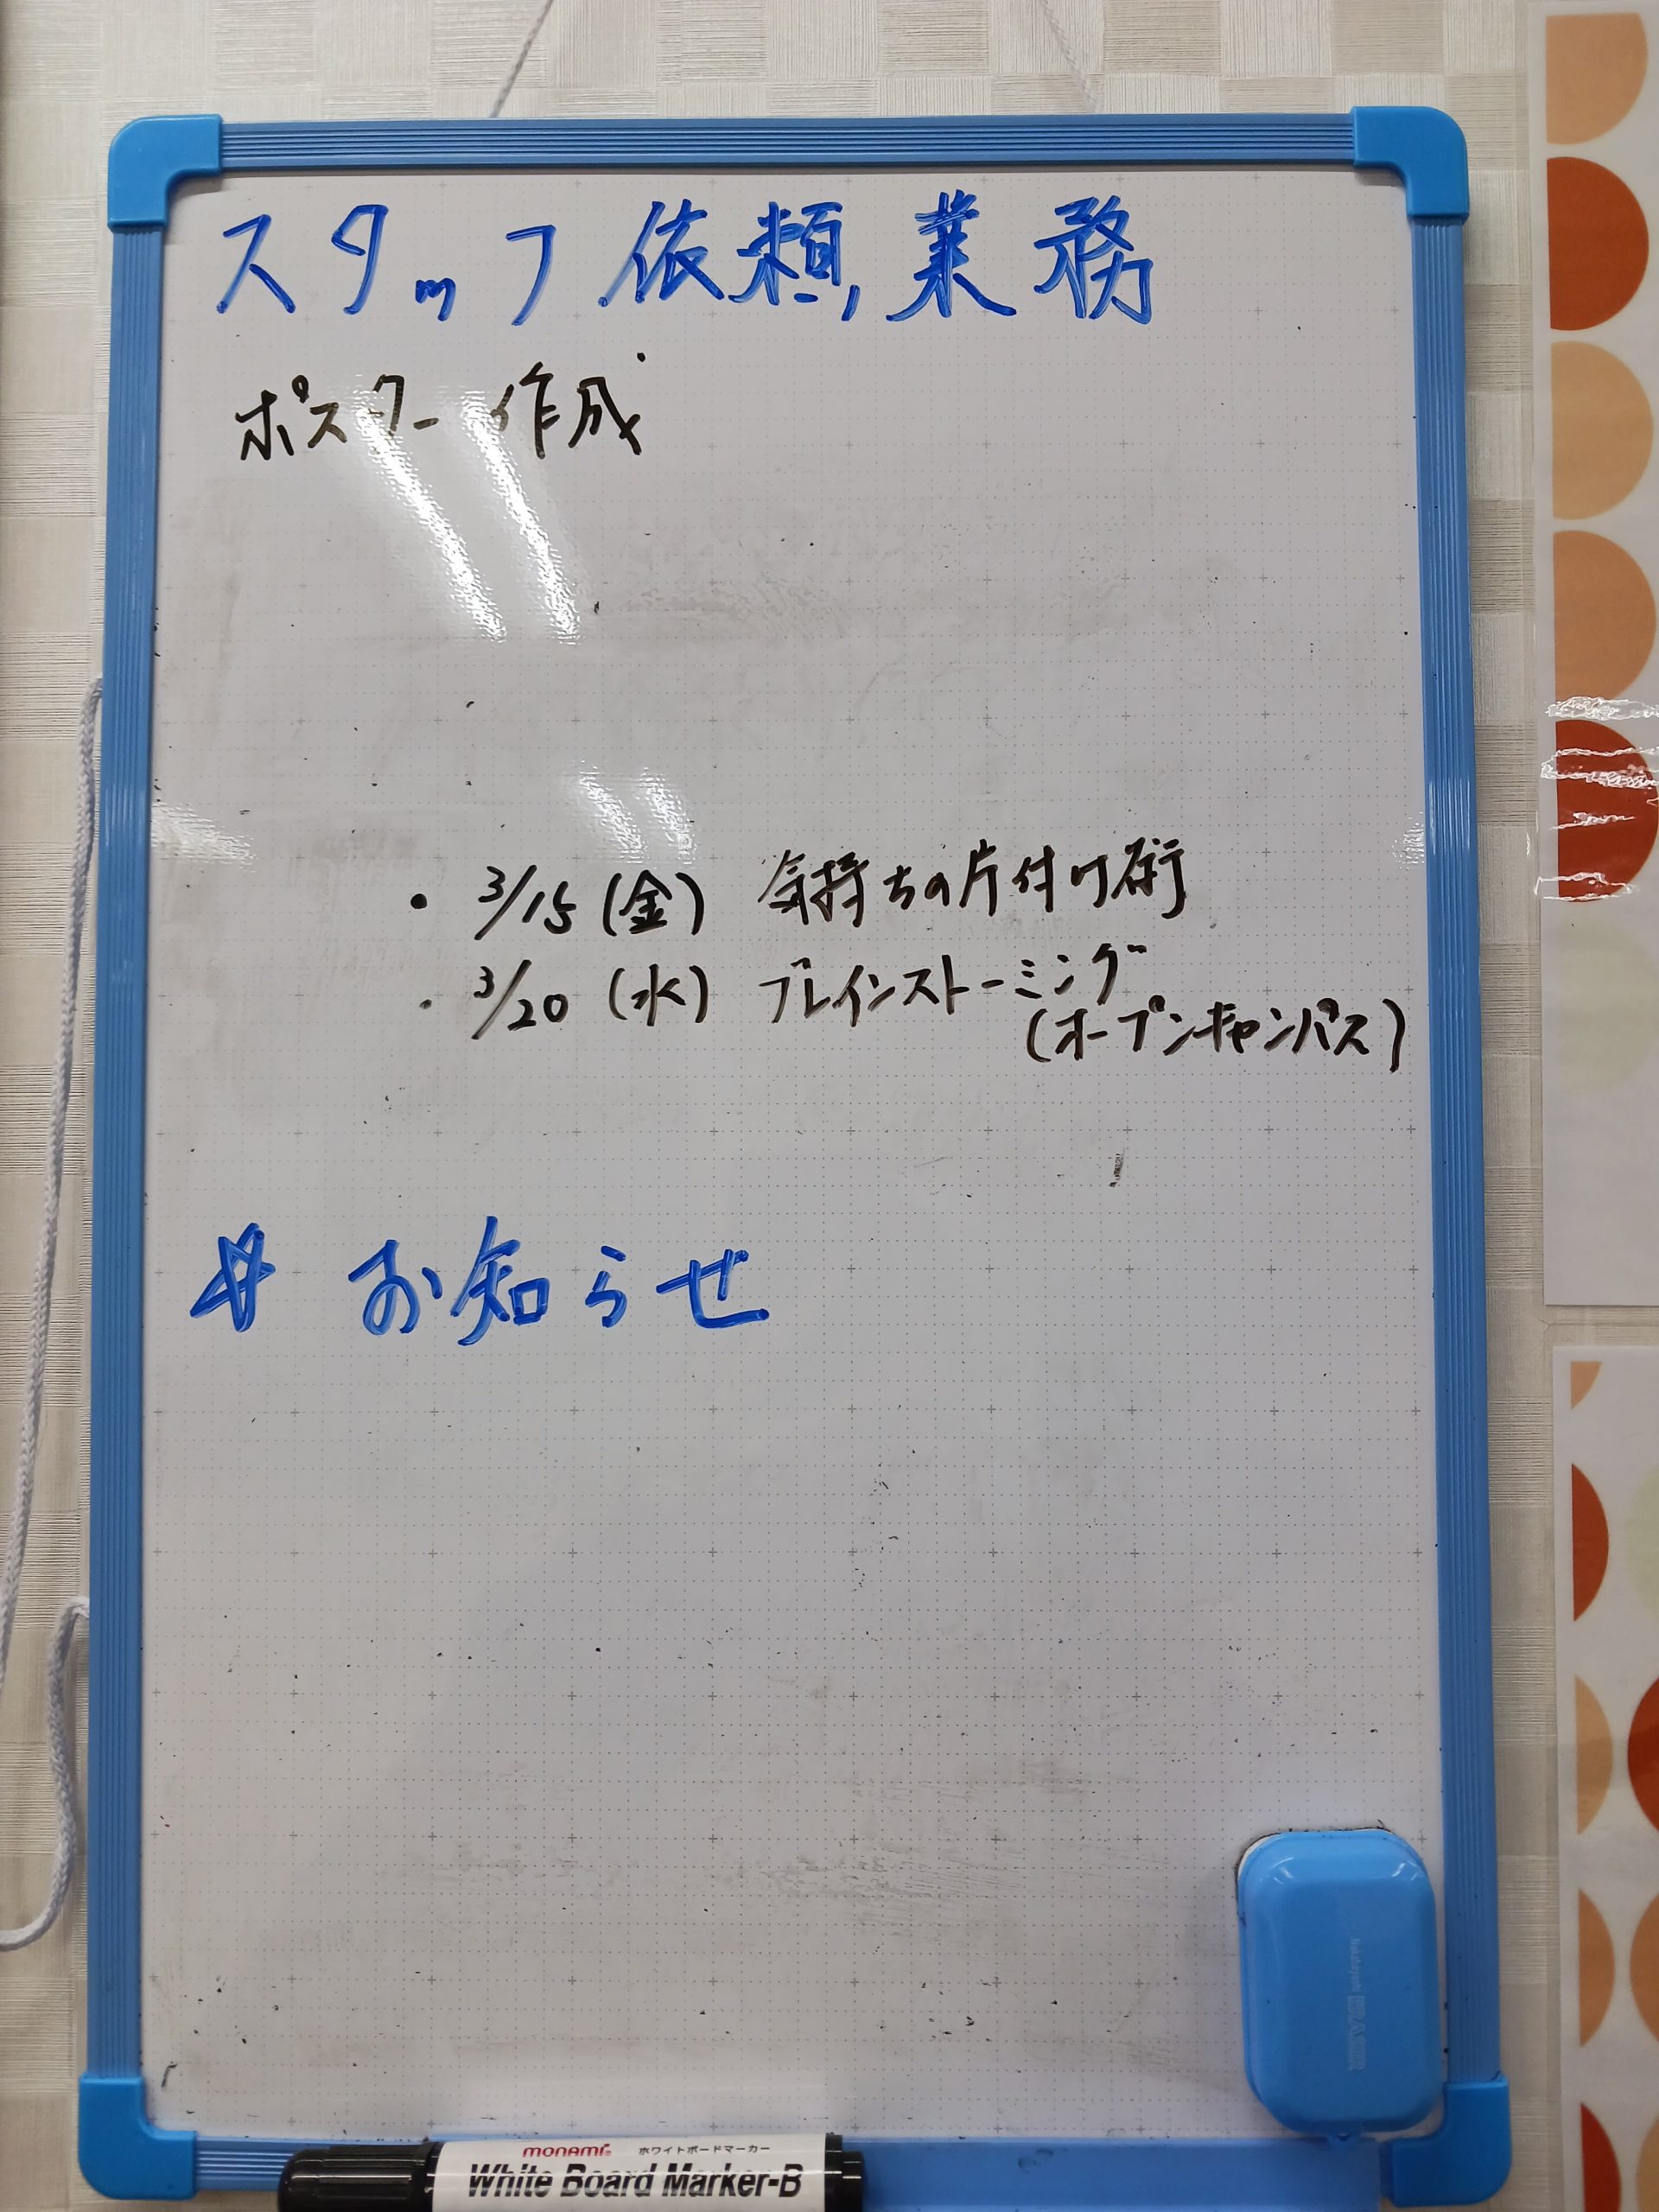 スタッフ依頼業務
ポスター作成
・3/15(金) 気持ちの片付け術
・3/20(水) ブレインストーミング
(オープンキャンパス)
お知らせ
monami ホワイトボードマーカー
White Board Marker-B